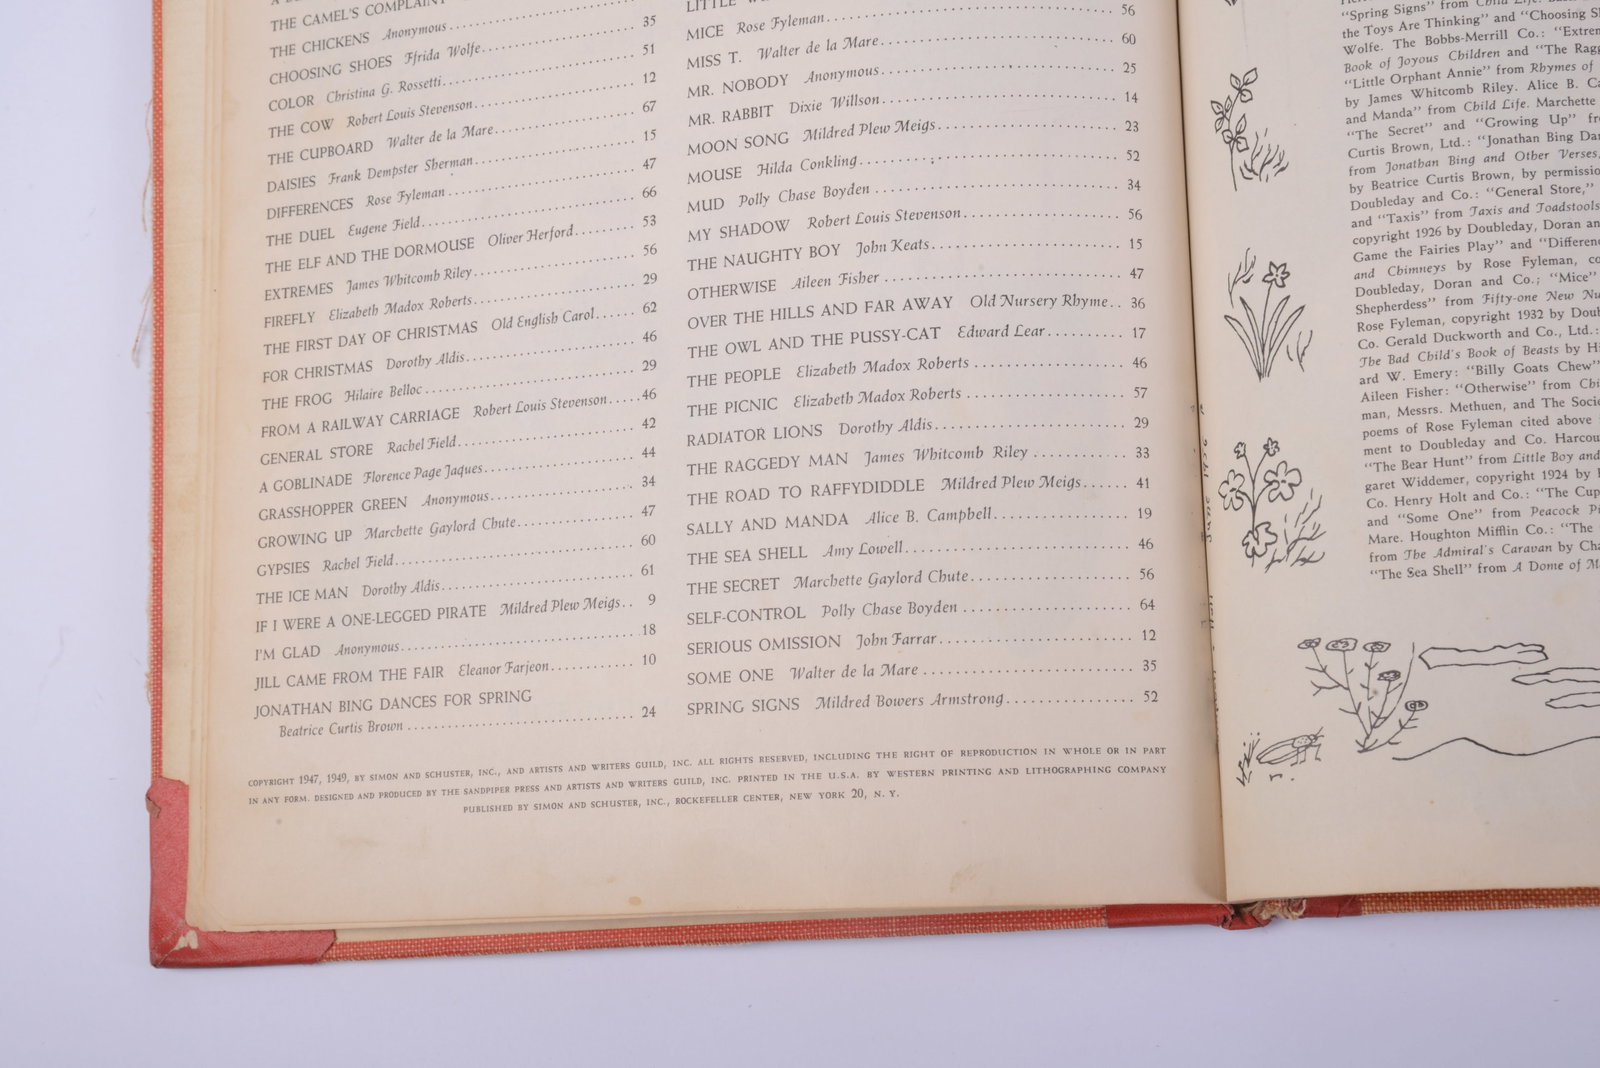 THE CAMEL'S COMPLAINT
THE CHICKENS Anonymous
CHOOSING SHOES Ffrida Wolfe 35
COLOR Christina G. Rossetti 51
THE COW Robert Louis Stevenson 12
THE CUPBOARD Walter de la Mare 67
DAISIES Frank Dempster Sherman 15
DIFFERENCES Rose Fyleman 47
THE DUEL Eugene Field 66
THE ELF AND THE DORMOUSE Oliver Herford 53
EXTREMES James Whitcomb Riley 56
FIREFLY Elizabeth Madox Roberts 29
THE FIRST DAY OF CHRISTMAS Old English Carol 62
FOR CHRISTMAS Dorothy Aldis 46
THE FROG Hilaire Belloc 29
FROM A RAILWAY CARRIAGE Robert Louis Stevenson 46
GENERAL STORE Rachel Field 42
A GOBLINADE Florence Page Jaques 44
GRASSHOPPER GREEN Anonymous 34
GROWING UP Marchette Gaylord Chute 47
GYPSIES Rachel Field 60
THE ICE MAN Dorothy Aldis 61
IF I WERE A ONE-LEGGED PIRATE Mildred Plew Meigs 9
I'M GLAD Anonymous 18
JILL CAME FROM THE FAIR Eleanor Farjeon 10
JONATHAN BING DANCES FOR SPRING
Beatrice Curtis Brown 24
LITTLE
MICE Rose Fyleman 56
MISS T. Walter de la Mare 60
MR. NOBODY Anonymous 25
MR. RABBIT Dixie Willson 14
MOON SONG Mildred Plew Meigs 23
MOUSE Hilda Conkling 52
MUD Polly Chase Boyden 34
MY SHADOW Robert Louis Stevenson 56
THE NAUGHTY BOY John Keats 15
OTHERWISE Aileen Fisher 47
OVER THE HILLS AND FAR AWAY Old Nursery Rhyme 36
THE OWL AND THE PUSSY-CAT Edward Lear 17
THE PEOPLE Elizabeth Madox Roberts 46
THE PICNIC Elizabeth Madox Roberts 57
RADIATOR LIONS Dorothy Aldis 29
THE RAGGEDY MAN James Whitcomb Riley 33
THE ROAD TO RAFFYDIDDLE Mildred Plew Meigs 41
SALLY AND MANDA Alice B. Campbell 19
THE SEA SHELL Amy Lowell 46
THE SECRET Marchette Gaylord Chute 56
SELF-CONTROL Polly Chase Boyden 64
SERIOUS OMISSION John Farrar 12
SOME ONE Walter de la Mare 35
SPRING SIGNS Mildred Bowers Armstrong 52
COPYRIGHT 1947, 1949, BY SIMON AND SCHUSTER, INC., AND ARTISTS AND WRITERS GUILD, INC. ALL RIGHTS RESERVED, INCLUDING THE RIGHT OF REPRODUCTION IN WHOLE OR IN PART
IN ANY FORM. DESIGNED AND PRODUCED BY THE SANDPIPER PRESS AND ARTISTS AND WRITERS GUILD, INC. PRINTED IN THE U.S.A. BY WESTERN PRINTING AND LITHOGRAPHING COMPANY
PUBLISHED BY SIMON AND SCHUSTER, INC., ROCKEFELLER CENTER, NEW YORK 20, N. Y.
"Spring Signs" from Child Life.
the Toys Are Thinking" and "Choosing
Wolfe. The Bobbs-Merrill Co.: "Extrem
Book of Joyous Children and "The Ragg
"Little Orphant Annie" from Rhymes of
by James Whitcomb Riley. Alice B. Ca
and Manda" from Child Life. Marchette
"The Secret" and "Growing Up" fr
Curtis Brown, Ltd.: "Jonathan Bing Dan
from Jonathan Bing and Other Verses,
by Beatrice Curtis Brown, by permissio
Doubleday and Co.: "General Store,"
and "Taxis" from Taxis and Toadstools
copyright 1926 by Doubleday, Doran an
Game the Fairies Play" and "Differenc
and Chimneys by Rose Fyleman, co
Doubleday, Doran and Co.; "Mice"
Shepherdess" from Fifty-one New Nu
Rose Fyleman, copyright 1932 by Doub
Co. Gerald Duckworth and Co., Ltd.:
The Bad Child's Book of Beasts by Hi
ard W. Emery: "Billy Goats Chew"
Aileen Fisher: "Otherwise" from Chi
man, Messrs. Methuen, and The Socie
poems of Rose Fyleman cited above
ment to Doubleday and Co. Harcou
"The Bear Hunt" from Little Boy and
garet Widdemer, copyright 1924 by
Co. Henry Holt and Co.: "The Cup
and "Some One" from Peacock Pi
Mare. Houghton Mifflin Co.: "The
from The Admiral's Caravan by Cha
"The Sea Shell" from A Dome of M